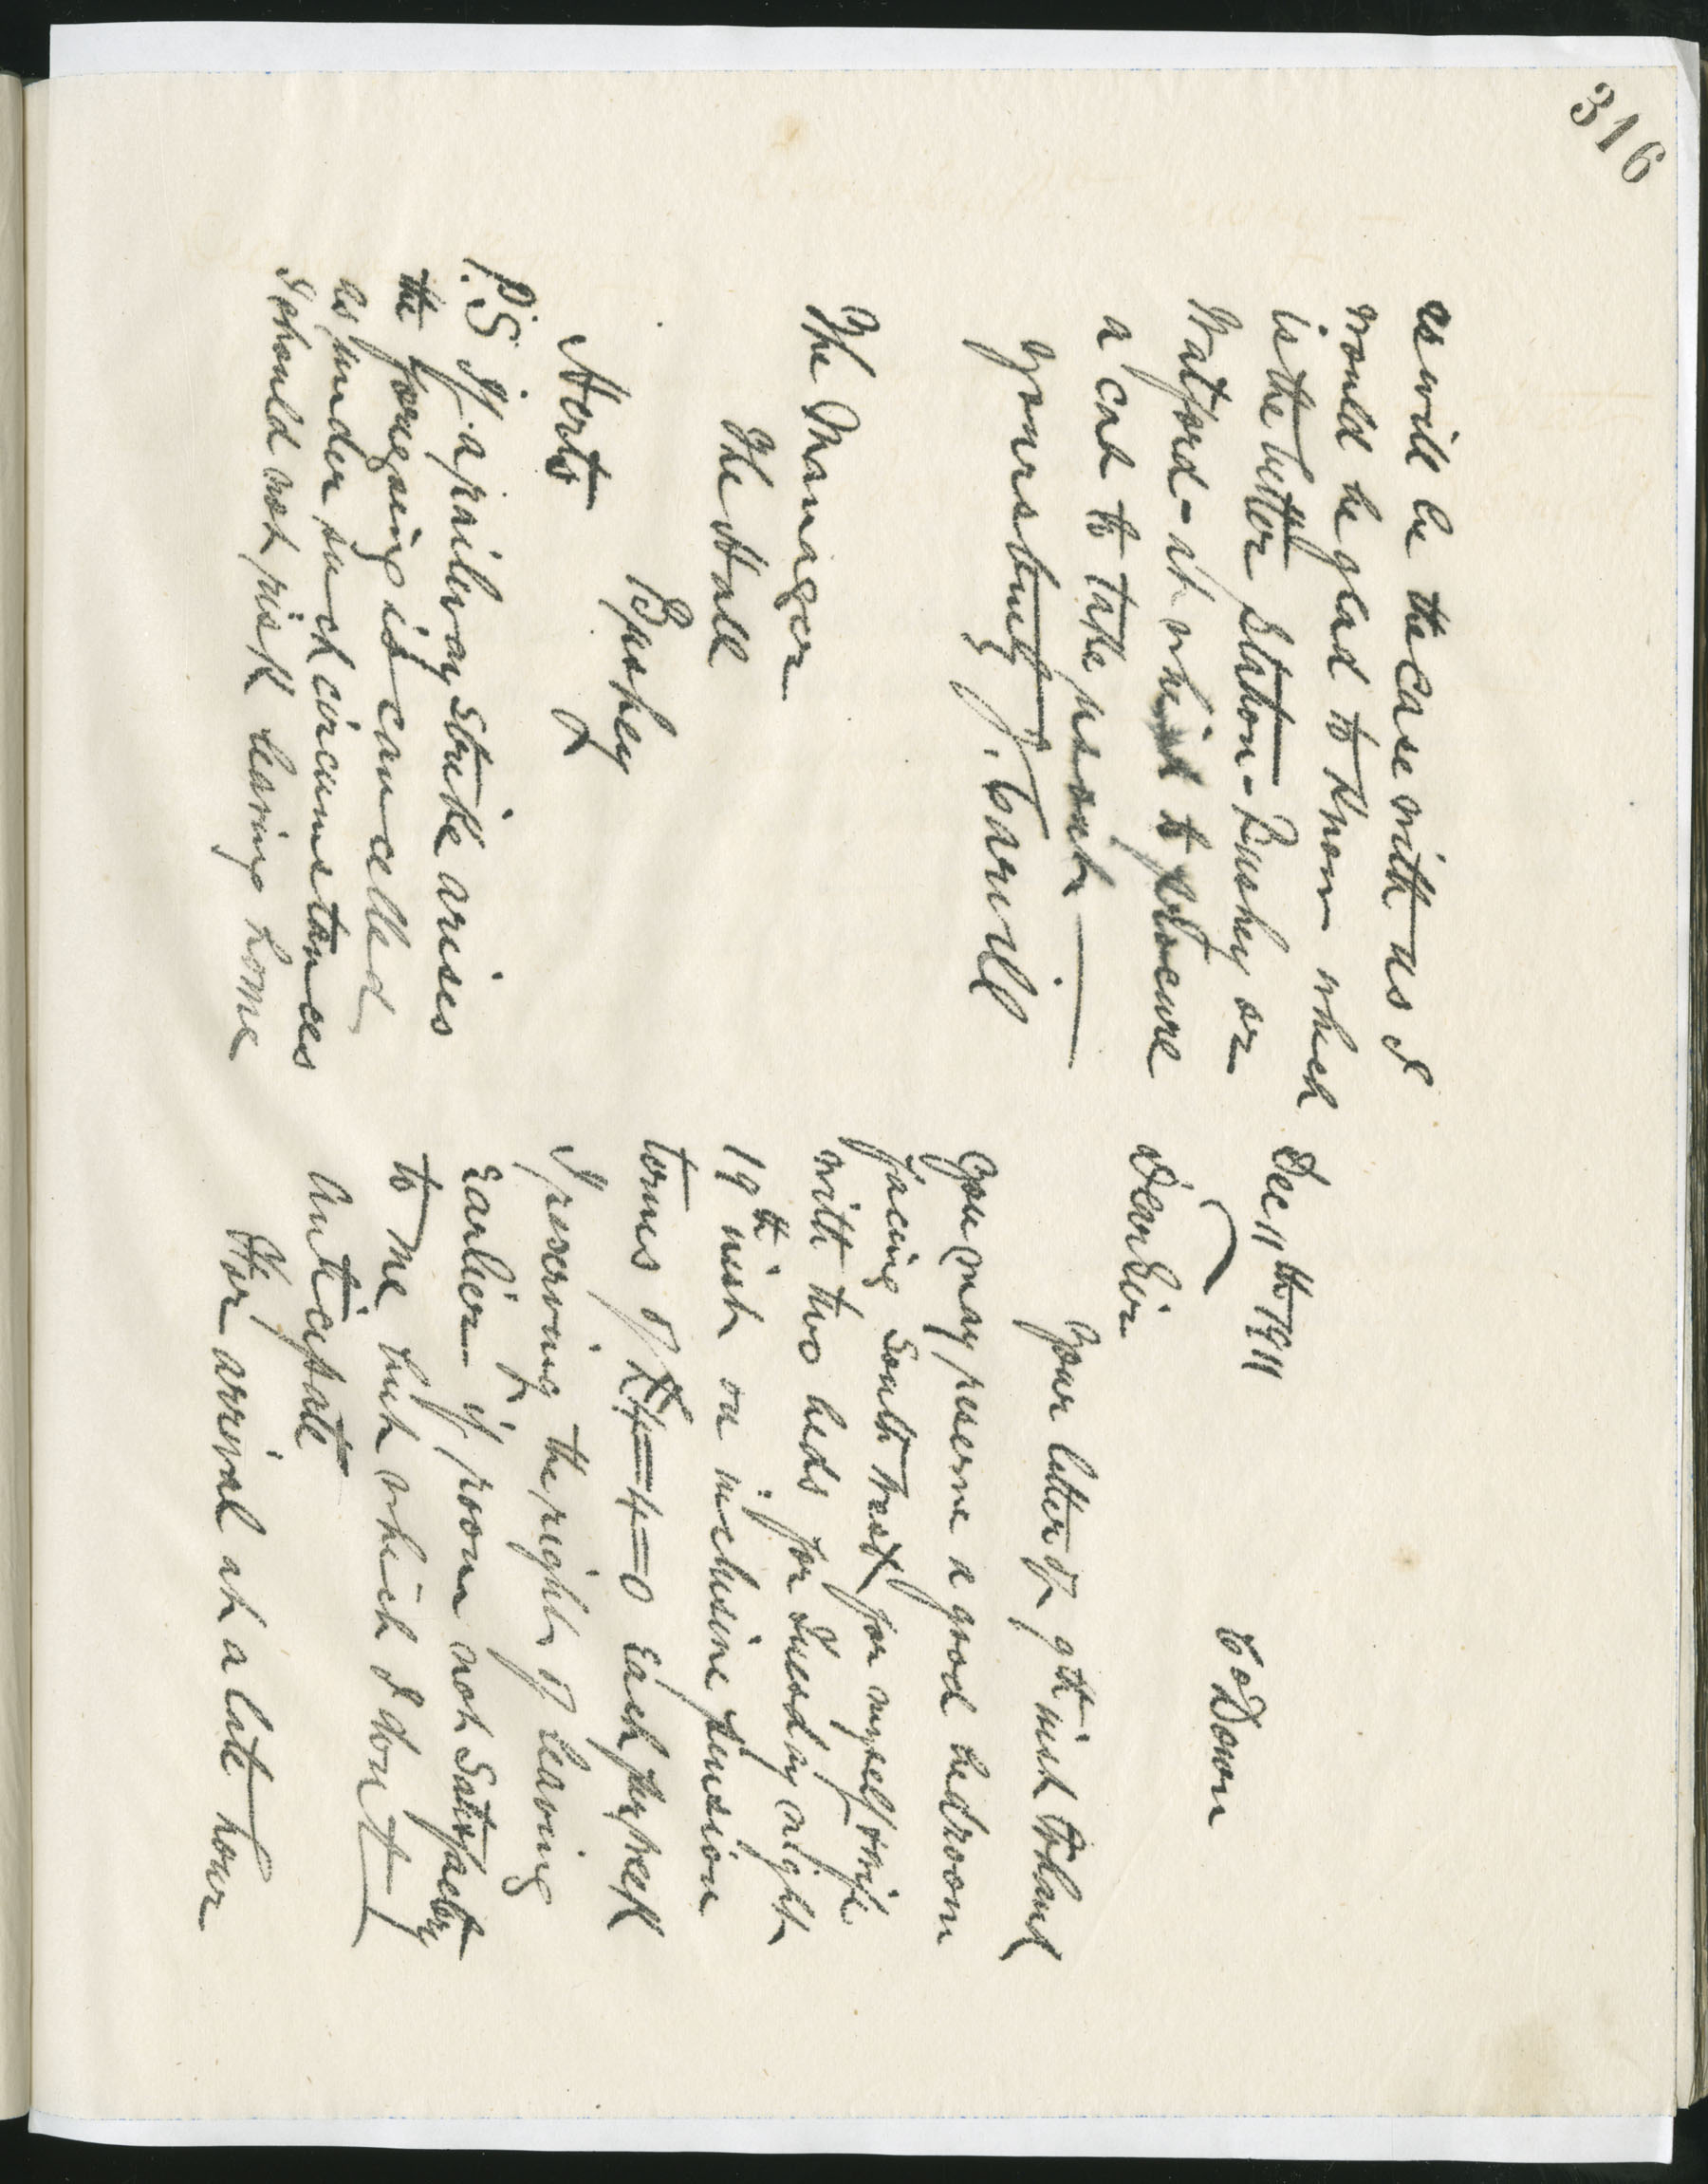 316
Co Down
Dec 11th 1911
Dear Sir
Your letter of 9th inst to hand
You may reserve a good bedroom
facing South West for myself & wife
with two beds for Tuesday night
19th inst on inclusive pension
terms of £4-4-0 each per week
I reserving the right of leaving
earlier if room not satisfactory
to me but which I dont
anticipate
For arrival at a late hour
as will be the case with us I
would be glad to know which
is the better station - Bushey or
Watford - at which to procure
a cab to take us out —
Yours truly J. Carvill
The Manager
The Hall
Bushey
Herts
P.S If a railway strike arises
the foregoing is cancelled
as under such circumstances
I should not risk leaving home